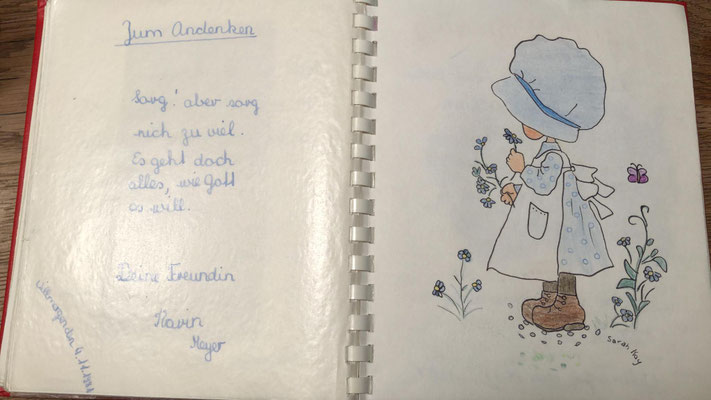 Zum Andenken
Sorg! aber sorg
nich zu viel.
Es geht doch
alles, wie Gott
es will.
Deine Freundin
Karin
Meyer
Sarah Kay